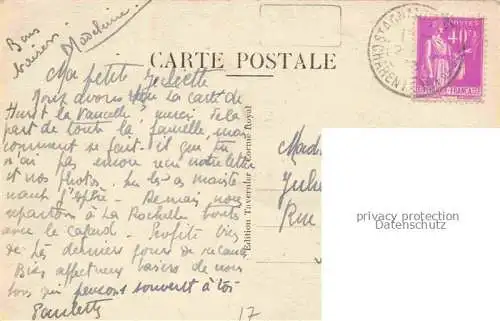 Bons
baisers
CARTE POSTALE
POSTES
40c
Ma petite Juliette
Nous avons la carte de
merci de la
part de toute la famille mais
comment se fait il que tu
n'ai pas encore reçu notre lettre
et nos photos. tu les a mainte
nant j'espère. Demain nous
repartons à La Rochelle tous
avec le cafard. Profite bien
de tes derniers jours de vacances
Bien affectueux baisers de nous
tous qui pensons souvent à toi
Paulette
17
Edition Tavernier, Cormé Royal
Rue
privacy protection
Datenschutz